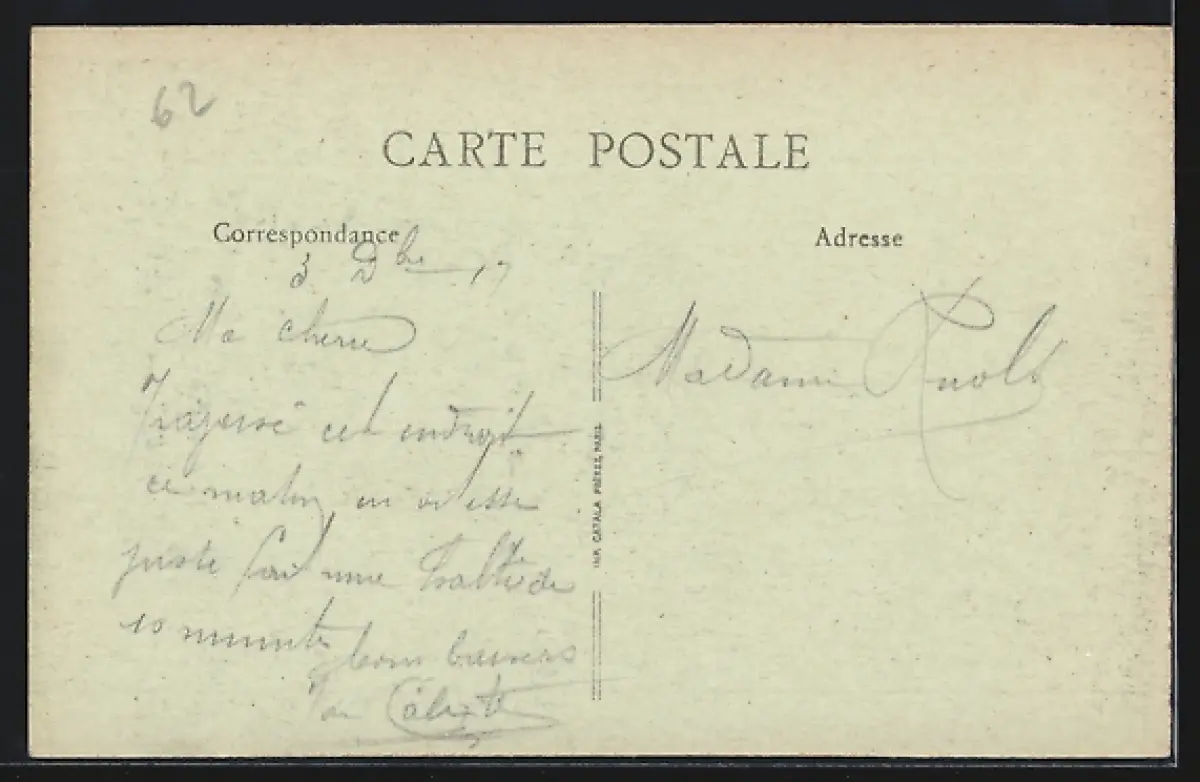 62
CARTE POSTALE
Correspondance
Adresse
3 Dbre 17
Ma cherie
Traversé cet endroit
ce matin, en vitesse
juste fait une halte de
10 minutes
bons baisers
Ton
Madame
IMP. CATALA FRÈRES, PARIS